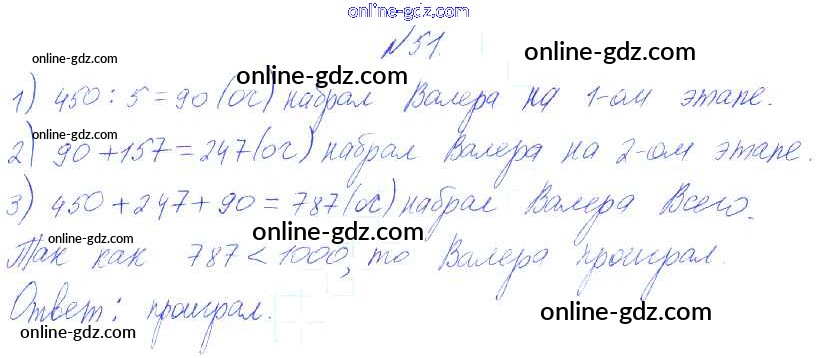 online-gdz.com
№51.
online-gdz.com online-gdz.com
1) 450 : 5 = 90 (оч) набрал Валера на 1-ом этапе.
online-gdz.com online-gdz.com
2) 90 + 157 = 247 (оч) набрал Валера на 2-ом этапе.
online-gdz.com
3) 450 + 247 + 90 = 787 (оч) набрал Валера Всего.
online-gdz.com online-gdz.com
Так как 787 < 1000, то Валера проиграл.
Ответ: проиграл.
online-gdz.com online-gdz.com
online-gdz.com